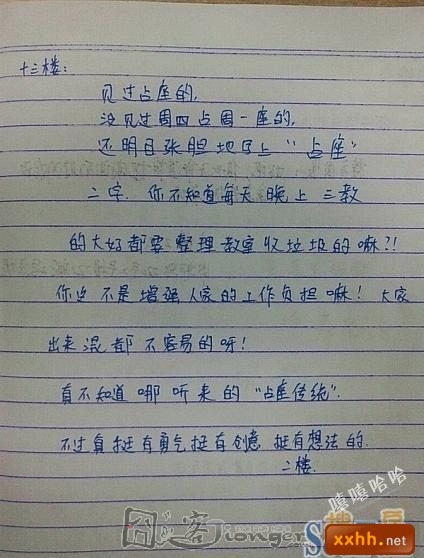 十三楼：
见过占座的，
没见过周四占周一座的，
还明目张胆地写上“占座”
二字．你不知道每天晚上三教
的大妈都要整理教室收垃圾的嘛？！
你这不是增强人家的工作负担嘛！大家
出来混都不容易的呀！
真不知道哪听来的“占座传统”．
不过真挺有勇气挺有创意 挺有想法的．
二楼．
嘻嘻哈哈
xxhh.net